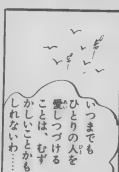 いつまでも
ひとりの人を
愛しつづける
ことは、むず
かしいことかも
しれないわ……